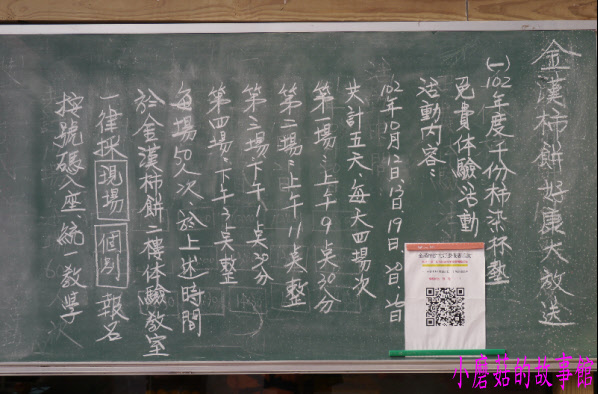 金漢柿餅 好康大放送
(一)102年度千份柿染杯墊
免費體驗活動
活動內容:
102年10月12日13日19日20日
共計五天、每天四場次
第一場:上午9點30分
第二場:上午11點整
第三場、下午1點30分
第四場、下午3點整
每場50人次、於上休時間
於金漢柿餅二樓体驗教室
一律採 現場 個別 報名
按號碼入座、統一教學
小蘑菇的故事館